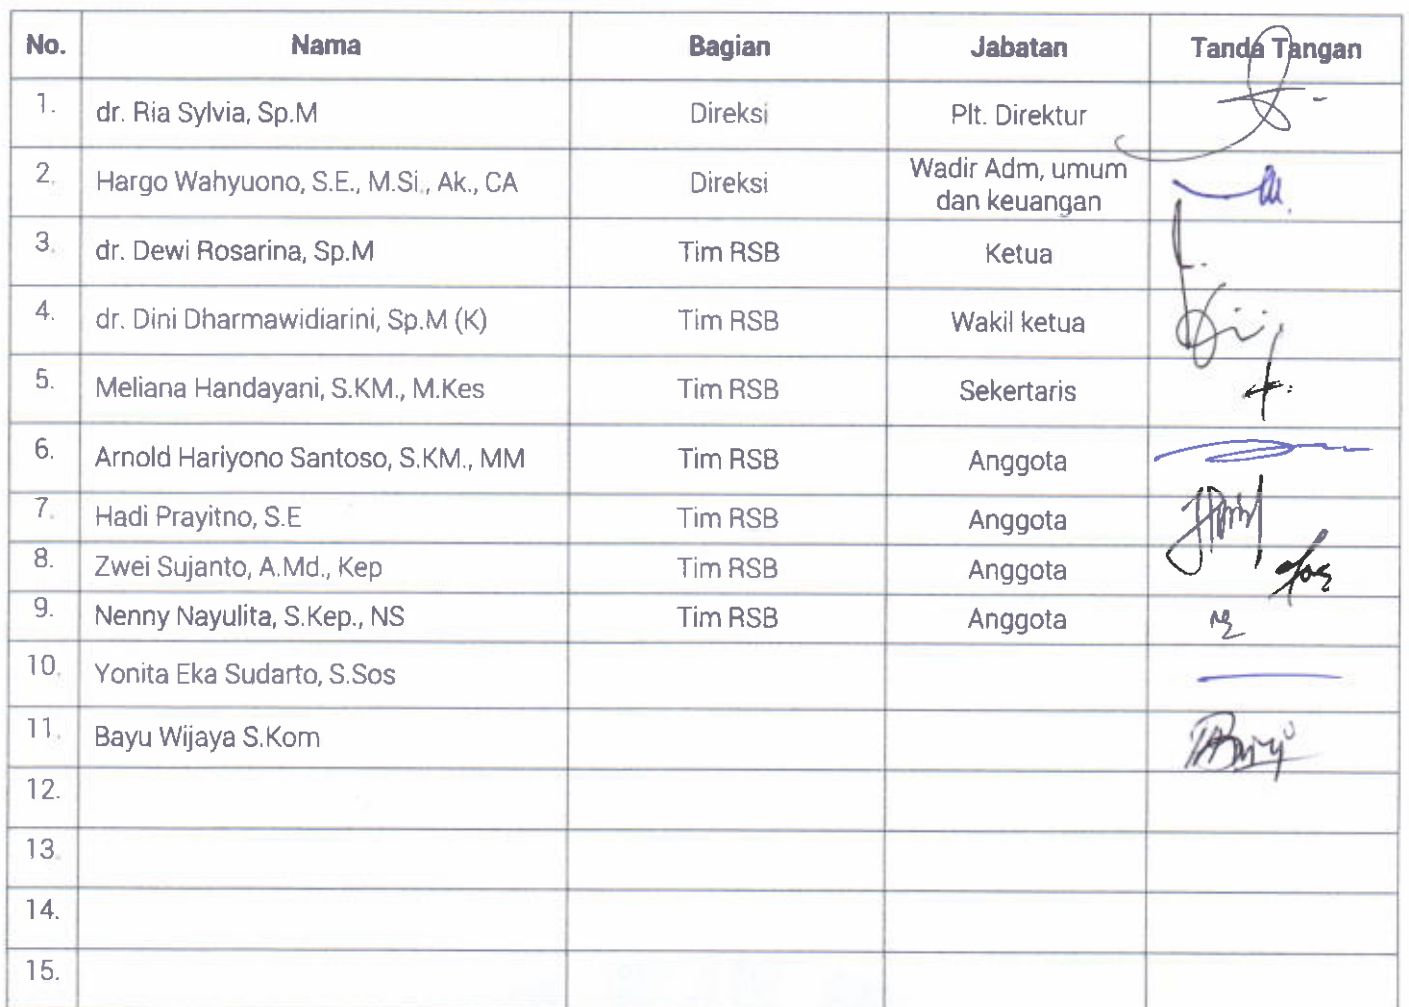 No. Nama Bagian Jabatan Tanda Tangan
1. dr. Ria Sylvia, Sp.M Direksi Plt. Direktur
2. Hargo Wahyuono, S.E., M.Si., Ak., CA Direksi Wadir Adm, umum
dan keuangan
3. dr. Dewi Rosarina, Sp.M Tim RSB Ketua
4. dr. Dini Dharmawidiarini, Sp.M (K) Tim RSB Wakil ketua
5. Meliana Handayani, S.KM., M.Kes Tim RSB Sekertaris
6. Arnold Hariyono Santoso, S.KM., MM Tim RSB Anggota
7. Hadi Prayitno, S.E Tim RSB Anggota
8. Zwei Sujanto, A.Md., Kep Tim RSB Anggota
9. Nenny Nayulita, S.Kep., NS Tim RSB Anggota
10. Yonita Eka Sudarto, S.Sos
11. Bayu Wijaya S.Kom
12.
13.
14.
15.